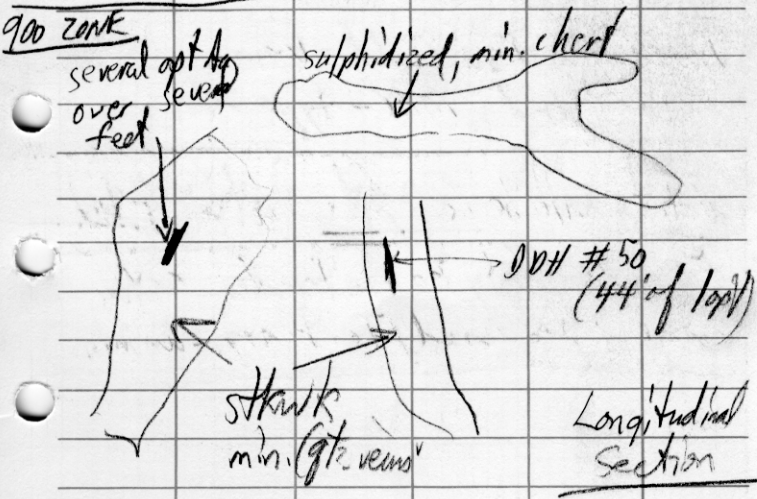 900 ZONE
several opt Ag
over several
feet
sulphidized, min. chert
DDH #50
(44' of 1opt)
stkwk
min. (qtz veins
Longitudinal
Section